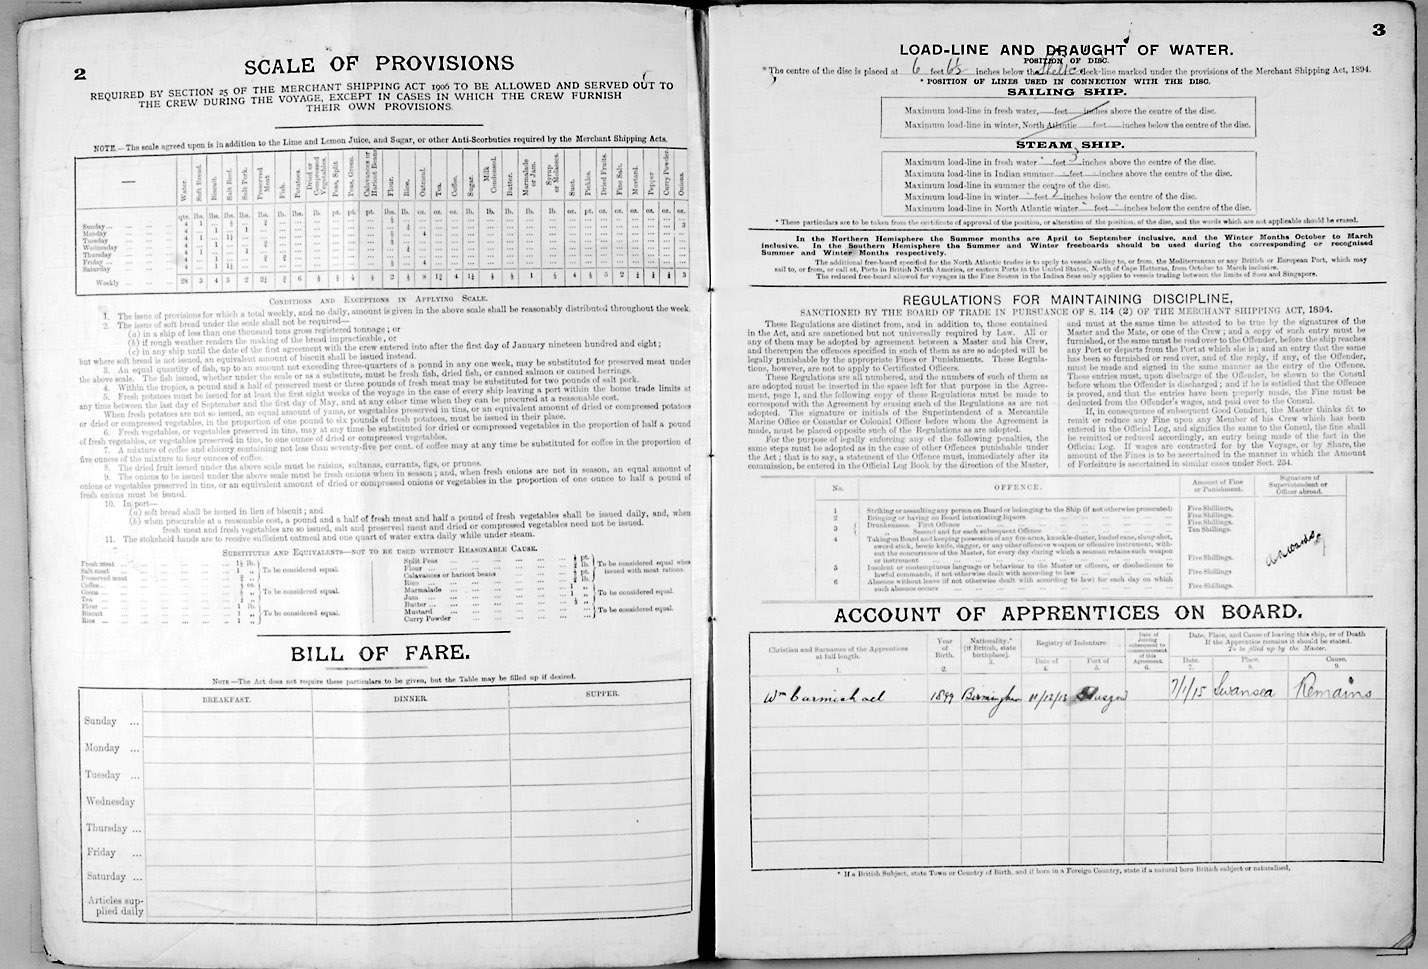 2
SCALE OF PROVISIONS
REQUIRED BY SECTION 25 OF THE MERCHANT SHIPPING ACT 1906 TO BE ALLOWED AND SERVED OUT TO
THE CREW DURING THE VOYAGE, EXCEPT IN CASES IN WHICH THE CREW FURNISH
THEIR OWN PROVISIONS.
NOTE.—The scale agreed upon is in addition to the Lime and Lemon Juice, and Sugar, or other Anti-Scorbutics required by the Merchant Shipping Acts.
Water. Soft Bread. Biscuit. Salt Beef. Salt Pork. Preserved Meat Fish. Potatoes. Dried or Compressed Vegetables. Peas, Split Peas, Green. Calavances or Haricot Beans Flour. Rice. Oatmeal. Tea. Coffee. Sugar. Milk Condensed. Butter. Marmalade or Jam. Syrup or Molasses. Suet. Pickles. Dried Fruits. Fine Salt. Mustard. Pepper Curry Powder. Onions.
Sunday
Monday
Tuesday
Wednesday
Thursday
Friday
Saturday
Weekly
CONDITIONS AND EXCEPTIONS IN APPLYING SCALE.
1. The issue of provisions for which a total weekly, and no daily, amount is given in the above scale shall be reasonably distributed throughout the week.
2. The issue of soft bread under the scale shall not be required—
(a) in a ship of less than one thousand tons gross registered tonnage; or
(b) if rough weather renders the making of the bread impracticable, or
(c) in any ship until the date of the first agreement with the crew entered into after the first day of January nineteen hundred and eight;
but where soft bread is not issued, an equivalent amount of biscuit shall be issued instead.
3. An equal quantity of fish, up to an amount not exceeding three-quarters of a pound in any one week, may be substituted for preserved meat under
the above scale. The fish issued, whether under the scale or as a substitute, must be fresh fish, dried fish, or canned salmon or canned herrings.
4. Within the tropics, a pound and a half of preserved meat or three pounds of fresh meat may be substituted for two pounds of salt pork.
5. Fresh potatoes must be issued for at least the first eight weeks of the voyage in the case of every ship leaving a port within the home trade limits at
any time between the last day of September and the first day of May, and at any other time when they can be procured at a reasonable cost.
When fresh potatoes are not so issued, an equal amount of yams, or vegetables preserved in tins, or an equivalent amount of dried or compressed potatoes
or dried or compressed vegetables, in the proportion of one pound to six pounds of fresh potatoes, must be issued in their place.
6. Fresh vegetables, or vegetables preserved in tins, may at any time be substituted for dried or compressed vegetables in the proportion of half a pound
of fresh vegetables, or vegetables preserved in tins, to one ounce of dried or compressed vegetables.
7. A mixture of coffee and chicory containing not less than seventy-five per cent. of coffee may at any time be substituted for coffee in the proportion of
five ounces of the mixture to four ounces of coffee.
8. The dried fruit issued under the above scale must be raisins, sultanas, currants, figs, or prunes.
9. The onions to be issued under the above scale must be fresh onions when in season; and, when fresh onions are not in season, an equal amount of
onions or vegetables preserved in tins, or an equivalent amount of dried or compressed onions or vegetables in the proportion of one ounce to half a pound of
fresh onions must be issued.
10. In port—
(a) soft bread shall be issued in lieu of biscuit; and
(b) when procurable at a reasonable cost, a pound and a half of fresh meat and half a pound of fresh vegetables shall be issued daily, and, when
fresh meat and fresh vegetables are so issued, salt and preserved meat and dried or compressed vegetables need not be issued.
11. The stokehold hands are to receive sufficient oatmeal and one quart of water extra daily while under steam.
SUBSTITUTES AND EQUIVALENTS—NOT TO BE USED WITHOUT REASONABLE CAUSE.
Fresh meat
Salt meat
Preserved meat
To be considered equal.
Coffee
Cocoa
Tea
To be considered equal.
Flour
Biscuit
Rice
To be considered equal.
Split Peas
Flour
Calavances or haricot beans
Rice
To be considered equal when
issued with meat rations.
Marmalade
Jam
Butter
To be considered equal.
Mustard
Curry Powder
To be considered equal.
BILL OF FARE.
NOTE—The Act does not require these particulars to be given, but the Table may be filled up if desired.
BREAKFAST. DINNER. SUPPER.
Sunday ...
Monday ...
Tuesday ...
Wednesday
Thursday ...
Friday ...
Saturday ...
Articles sup-
plied daily
3
LOAD-LINE AND DRAUGHT OF WATER.
POSITION OF DISC.
*The centre of the disc is placed at 6 feet 6½ inches below the Shelter deck-line marked under the provisions of the Merchant Shipping Act, 1894.
* POSITION OF LINES USED IN CONNECTION WITH THE DISC.
SAILING SHIP.
Maximum load-line in fresh water, feet inches above the centre of the disc.
Maximum load-line in winter, North Atlantic feet inches below the centre of the disc.
STEAM SHIP.
Maximum load-line in fresh water feet inches above the centre of the disc.
Maximum load-line in Indian summer feet inches above the centre of the disc.
Maximum load-line in summer the centre of the disc.
Maximum load-line in winter feet inches below the centre of the disc.
Maximum load-line in North Atlantic winter feet inches below the centre of the disc.
* These particulars are to be taken from the certificate of approval of the position, or alteration of the position, of the disc, and the words which are not applicable should be erased.
In the Northern Hemisphere the Summer months are April to September inclusive, and the Winter Months October to March
inclusive. In the Southern Hemisphere the Summer and Winter freeboards should be used during the corresponding or recognised
Summer and Winter Months respectively.
The additional free-board specified for the North Atlantic trades is to apply to vessels sailing to, or from, the Mediterranean or any British or European Port, which may
sail to, or from, or call at, Ports in British North America, or eastern Ports in the United States, North of Cape Hatteras, from October to March inclusive.
The reduced free-board allowed for voyages in the Fine Season in the Indian Seas only applies to vessels trading between the limits of Suez and Singapore.
REGULATIONS FOR MAINTAINING DISCIPLINE,
SANCTIONED BY THE BOARD OF TRADE IN PURSUANCE OF S. 114 (2) OF THE MERCHANT SHIPPING ACT, 1894.
These Regulations are distinct from, and in addition to, those contained
in the Act, and are sanctioned but not universally required by Law. All or
any of them may be adopted by agreement between a Master and his Crew,
and thereupon the offences specified in such of them as are so adopted will be
legally punishable by the appropriate Fines or Punishments. These Regula-
tions, however, are not to apply to Certificated Officers.
These Regulations are all numbered, and the numbers of such of them as
are adopted must be inserted in the space left for that purpose in the Agree-
ment, page 1, and the following copy of these Regulations must be made to
correspond with the Agreement by erasing such of the Regulations as are not
adopted. The signature or initials of the Superintendent of a Mercantile
Marine Office or Consular or Colonial Officer before whom the Agreement is
made, must be placed opposite such of the Regulations as are adopted.
For the purpose of legally enforcing any of the following penalties, the
same steps must be adopted as in the case of other Offences punishable under
the Act; that is to say, a statement of the Offence must, immediately after its
commission, be entered in the Official Log Book by the direction of the Master,
and must at the same time be attested to be true by the signatures of the
Master and the Mate, or one of the Crew; and a copy of such entry must be
furnished, or the same must be read over to the Offender, before the ship reaches
any Port or departs from the Port at which she is; and an entry that the same
has been so furnished or read over, and of the reply, if any, of the Offender,
must be made and signed in the same manner as the entry of the Offence.
These entries must, upon discharge of the Offender, be shewn to the Consul
before whom the Offender is discharged; and if he is satisfied that the Offence
is proved, and that the entries have been properly made, the Fine must be
deducted from the Offender's wages, and paid over to the Consul.
If, in consequence of subsequent Good Conduct, the Master thinks fit to
remit or reduce any Fine upon any Member of his Crew which has been
entered in the Official Log, and signifies the same to the Consul, the fine shall
be remitted or reduced accordingly, an entry being made of the fact in the
Official Log. If wages are contracted for by the Voyage, or by Share, the
amount of the Fines is to be ascertained in the manner in which the Amount
of Forfeiture is ascertained in similar cases under Sect. 234.
No. OFFENCE. Amount of Fine or Punishment. Signature of Superintendent or Officer abroad.
1 Striking or assaulting any person on Board or belonging to the Ship (if not otherwise prosecuted) Five Shillings.
2 Bringing or having on Board intoxicating liquors Five Shillings.
3 Drunkenness. First Offence Five Shillings.
Second and for each subsequent Offence Ten Shillings.
4 Taking on Board and keeping possession of any fire-arms, knuckle-duster, loaded cane, slung-shot,
sword stick, bowie knife, dagger, or any other offensive weapon or offensive instrument, with-
out the concurrence of the Master, for every day during which a seaman retains such weapon
or instrument Five Shillings.
5 Insolent or contemptuous language or behaviour to the Master or officers, or disobedience to
lawful commands, if not otherwise dealt with according to law Five Shillings
6 Absence without leave (if not otherwise dealt with according to law) for each day on which
such absence occurs Five Shillings.
ACCOUNT OF APPRENTICES ON BOARD.
Christian and Surnames of the Apprentices at full length. 1.
Year of Birth. 2.
Nationality.* [If British, state birthplace]. 3.
Registry of Indenture
Date of 4.
Port of 5.
Date of Joining subsequent to commencement of this Agreement. 6.
Date, Place, and Cause of leaving this ship, or of Death
If the Apprentice remains it should be stated.
To be filled up by the Master.
Date. 7. Place. 8. Cause. 9.
Wm Carmichael 1899 Birmingham 11/12/13 Glasgow 7/1/15 Swansea Remains
* If a British Subject, state Town or Country of Birth, and if born in a Foreign Country, state if a natural born British subject or naturalised.